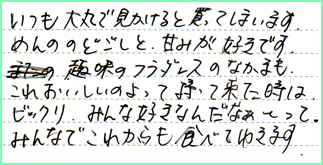 いつも大丸で見かけると買ってしまいます。
めんののどごしと、甘みが好きです。
趣味のフラダンスのなかまも、
これおいしいのよって持って来た時は、
ビックリ、みんな好きなんだなぁ〜って。
みんなでこれからも食べてゆきます